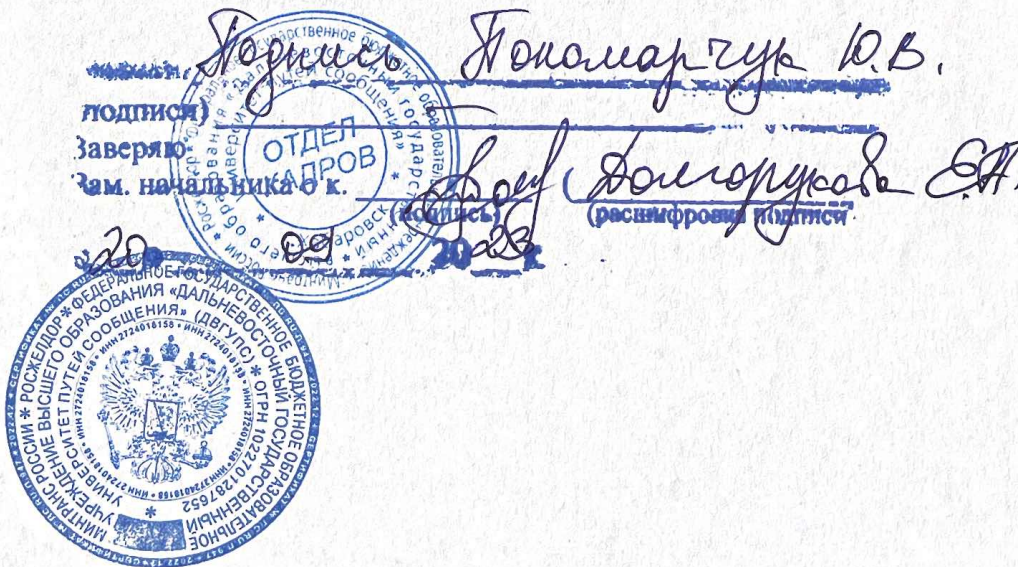 Подпись Пономарчук Ю.В.
подписи)
Заверяю
Зам. начальника о к. (Долгорукова Е.А.
(подпись) (расшифровка подписи
20 09 2023 г.
ОТДЕЛ
КАДРОВ
МИНТРАНС РОССИИ * РОСЖЕЛДОР * ФЕДЕРАЛЬНОЕ ГОСУДАРСТВЕННОЕ БЮДЖЕТНОЕ ОБРАЗОВАТЕЛЬНОЕ
УЧРЕЖДЕНИЕ ВЫСШЕГО ОБРАЗОВАНИЯ «ДАЛЬНЕВОСТОЧНЫЙ ГОСУДАРСТВЕННЫЙ
УНИВЕРСИТЕТ ПУТЕЙ СООБЩЕНИЯ» (ДВГУПС) * ОГРН 1022701287652 *
ИНН 2724018158 * ИНН 2724018158 * ИНН 2724018158